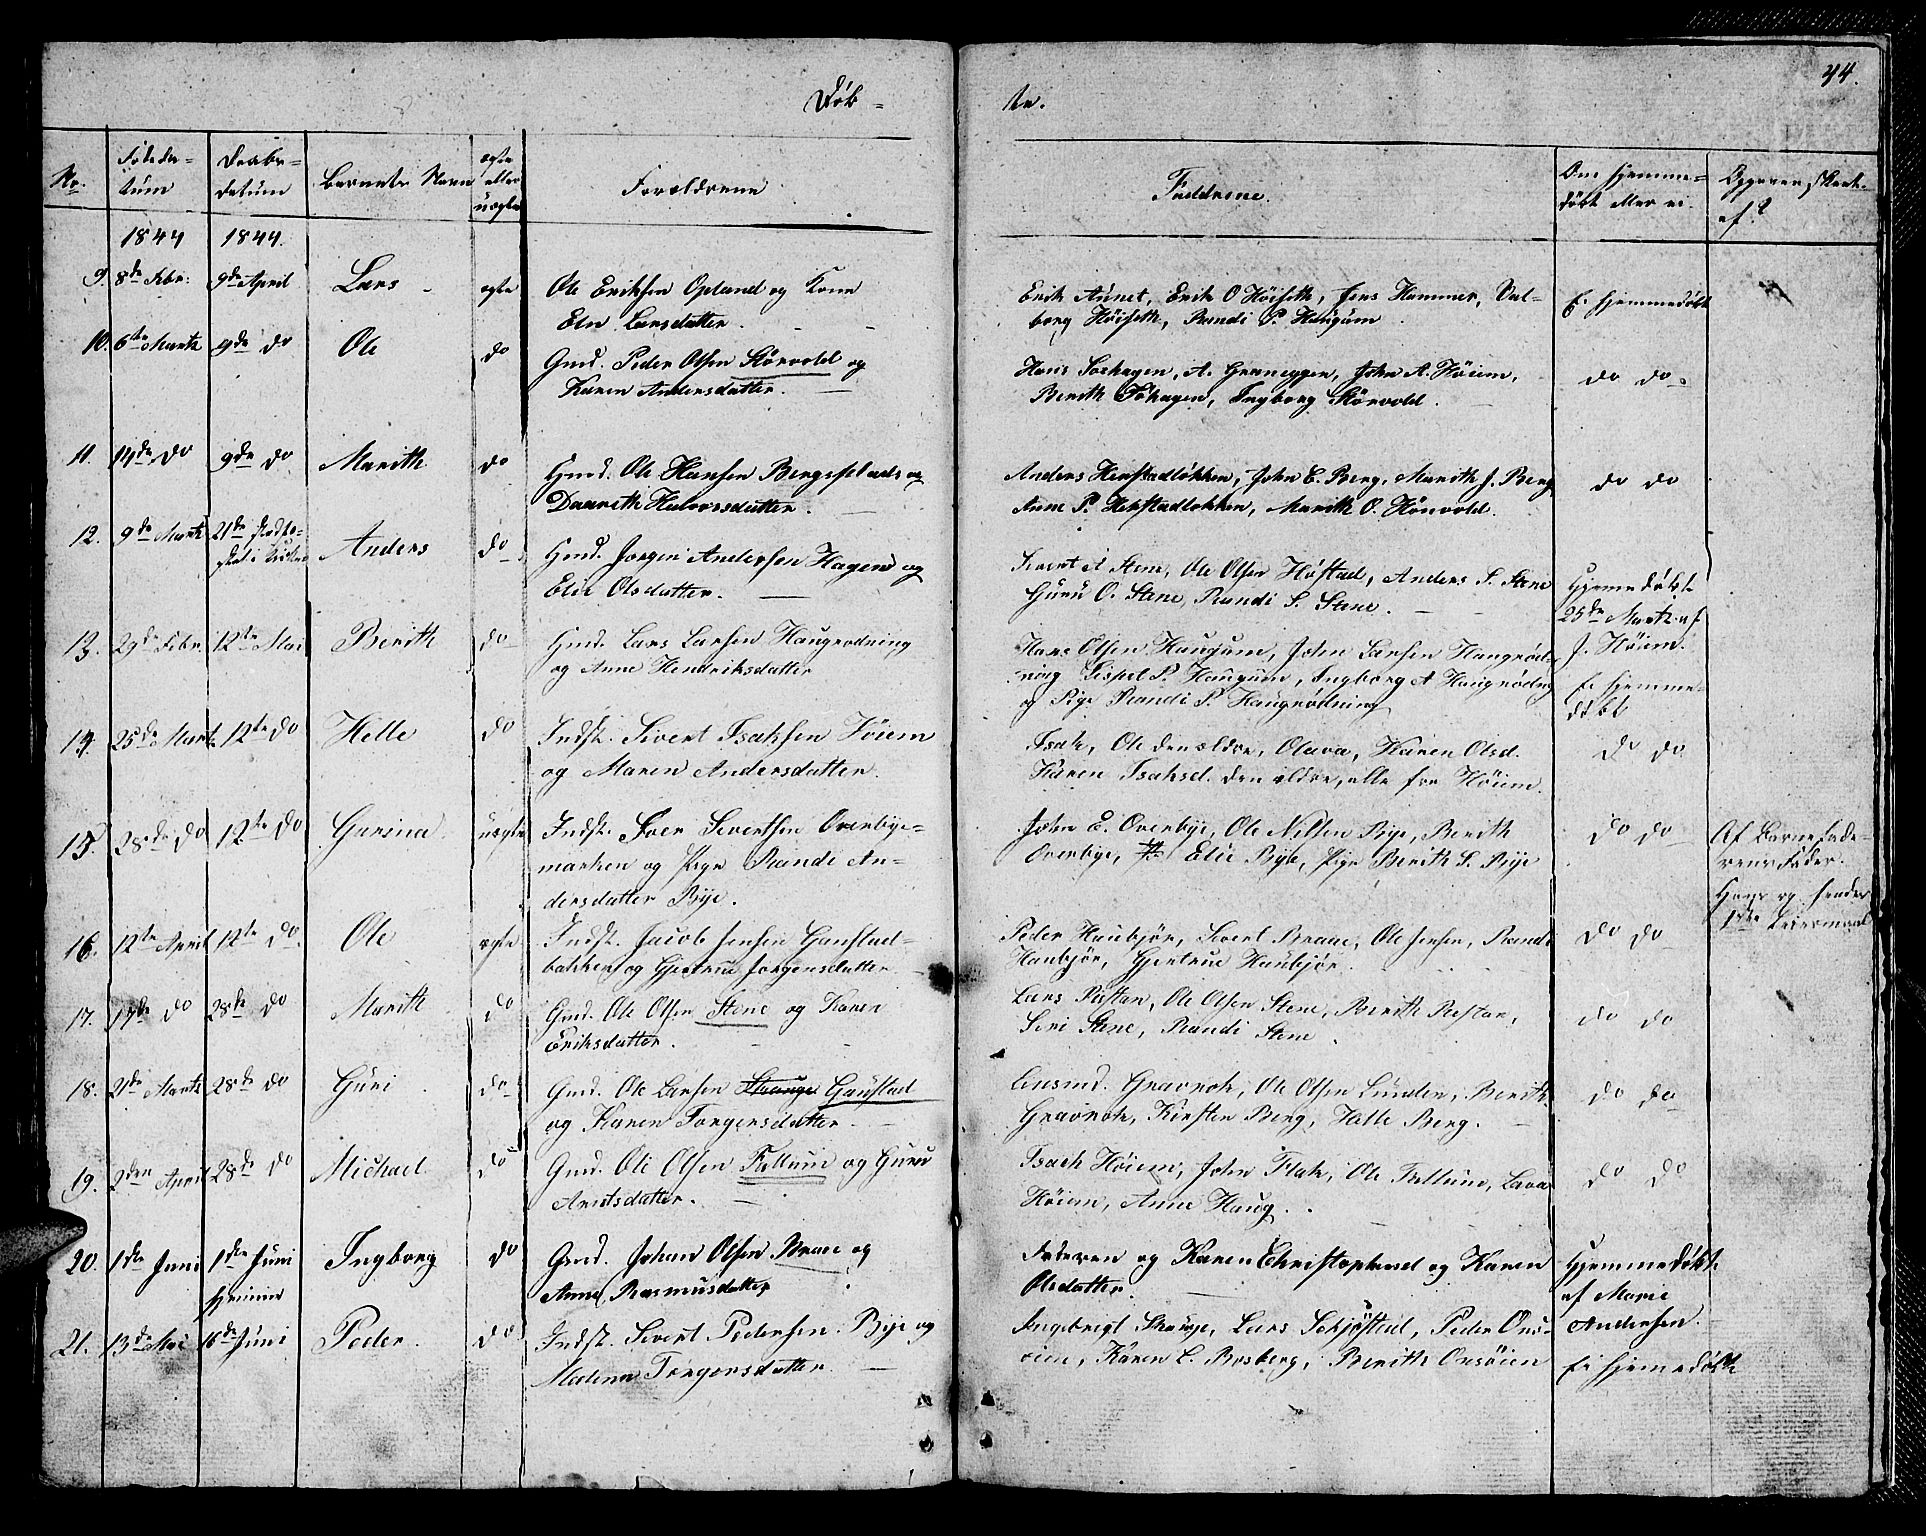 Døb-
te.
44.
No.
Føde da-
tum
Daabs-
datum
Barnets Navn
ægte
eller
uægte
Forældrene
Faddrene.
Om hjemme-
døbt eller ei.
1844
1844.
9. 8de Febr: 9de April Lars ægte Ole Eriksen Opland og Kone
Elen Larsdatter.
Erik Aunet, Erik O Höiseth, Jens Hammer, Val-
borg Höiseth, Randi P. Haugum
Ei hjemmedøbt
10. 6te Martz 9de do Ole do Gmd. Peder Olsen Störvold og
Karen Andersdatter.
A. Graneggen, John A. Höiem,
Berith Ingborg Störvold.
do do
11. 14de do 9de do Marith do Hmd. Ole Hansen Bergsplads og
Daareth Halvorsdatter.
Anders Herstadløkken, John E. Berg, Marith J. Berg
Anne P. Marith O.
do do
12. 9de Martz 21de Anders do Hmd. Jorgen Andersen Hagen og
Elie Olsdatter.
Sivert A Stene, Ole Olsen Høstad, Anders S. Stene
Guru O. Stene, Randi S. Stene.
Hjemmedøbt
25de Martz af
J. Höiem.
13. 29de Febr. 12te Mai Berith do Hmd. Lars Larsen Haugrodning
og Anne Hendriksdatter
Hans Olsen Haugum, John Larsen Haugröd-
ning Sispel P. Haugum, Ingborg A Haugrödng
og Pige Randi P. Haugrödning
Ei hjemme-
døbt
14. 25de Martz 12te do Helle do Indst. Sivert Isaksen Höiem
og Maren Andersdatter.
Isak, Ole den ældre, Olava, Karen Olsd.
Karen Isaksd. den ældre, alle fra Höiem.
do do
15. 28de do 12te do Gurina uægte Indst. Iver Sivertsen Overbye-
marken og Pige Randi An-
dersdatter Bye.
John E. Overbye, Ole Nilsen Bye, Berith
Overbye, Elie Bye, Pige Berith S. Bye
do do
Af Barnefade-
rens Fader.
Hans og hendes
1ste Leiermaal
16. 12te April 12te do Ole ægte Indst. Jacob Jensen Gaustad-
bakken og Gjertrue Jorgensdatter
Peder Haubjör, Sivert Braae, Ole Jensen, Randi
Haubjör, Gjertrue Haubjör.
do do
17. 17de do 28de do Marith do Gmd. Ole Olsen Stene og Karen
Eriksdatter.
Lars Ole Olsen Stene, Berith
Siri Stene, Randi Stene.
do do
18. 28de do Guri do Gmd. Ole Larsen Gaustad
og Karen Torgersdatter.
Gravrok, Ole Olsen Lunden, Berith
Gravrok, Kirsten Berg, Helle Berg.
do do
19. 2den April 28de do Michael do Gmd. Ole Olsen Tellum og Guru
Arntsdatter.
Isach Höiem, John Flak, Ole Tellum, Lava
Höiem, Anne Haug.
do do
20. 1die Juni 1die Juni
hjemme
Ingborg do Gmd. Johan Olsen Braae og
Anne Rasmusdatter
Faderen og Karen Christophersd og Karen
Olsdatter.
Hjemmedøbt
af Marie
Andersen.
21. 13de Mai 16de Juni Peder. do Indst. Sivert Pedersen Bye og
Malena Torgersdatter.
Ingebrigt Skauge, Lars Sekjøstad, Peder Ons-
øien, Karen L. Rosberg, Berith Onsøien
Ei hjemmedøbt